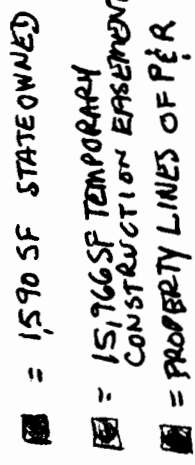 = 1,590 SF STATE OWNED
= 15,966 SF TEMPORARY
CONSTRUCTION EASEMENT
= PROPERTY LINES OF P&R